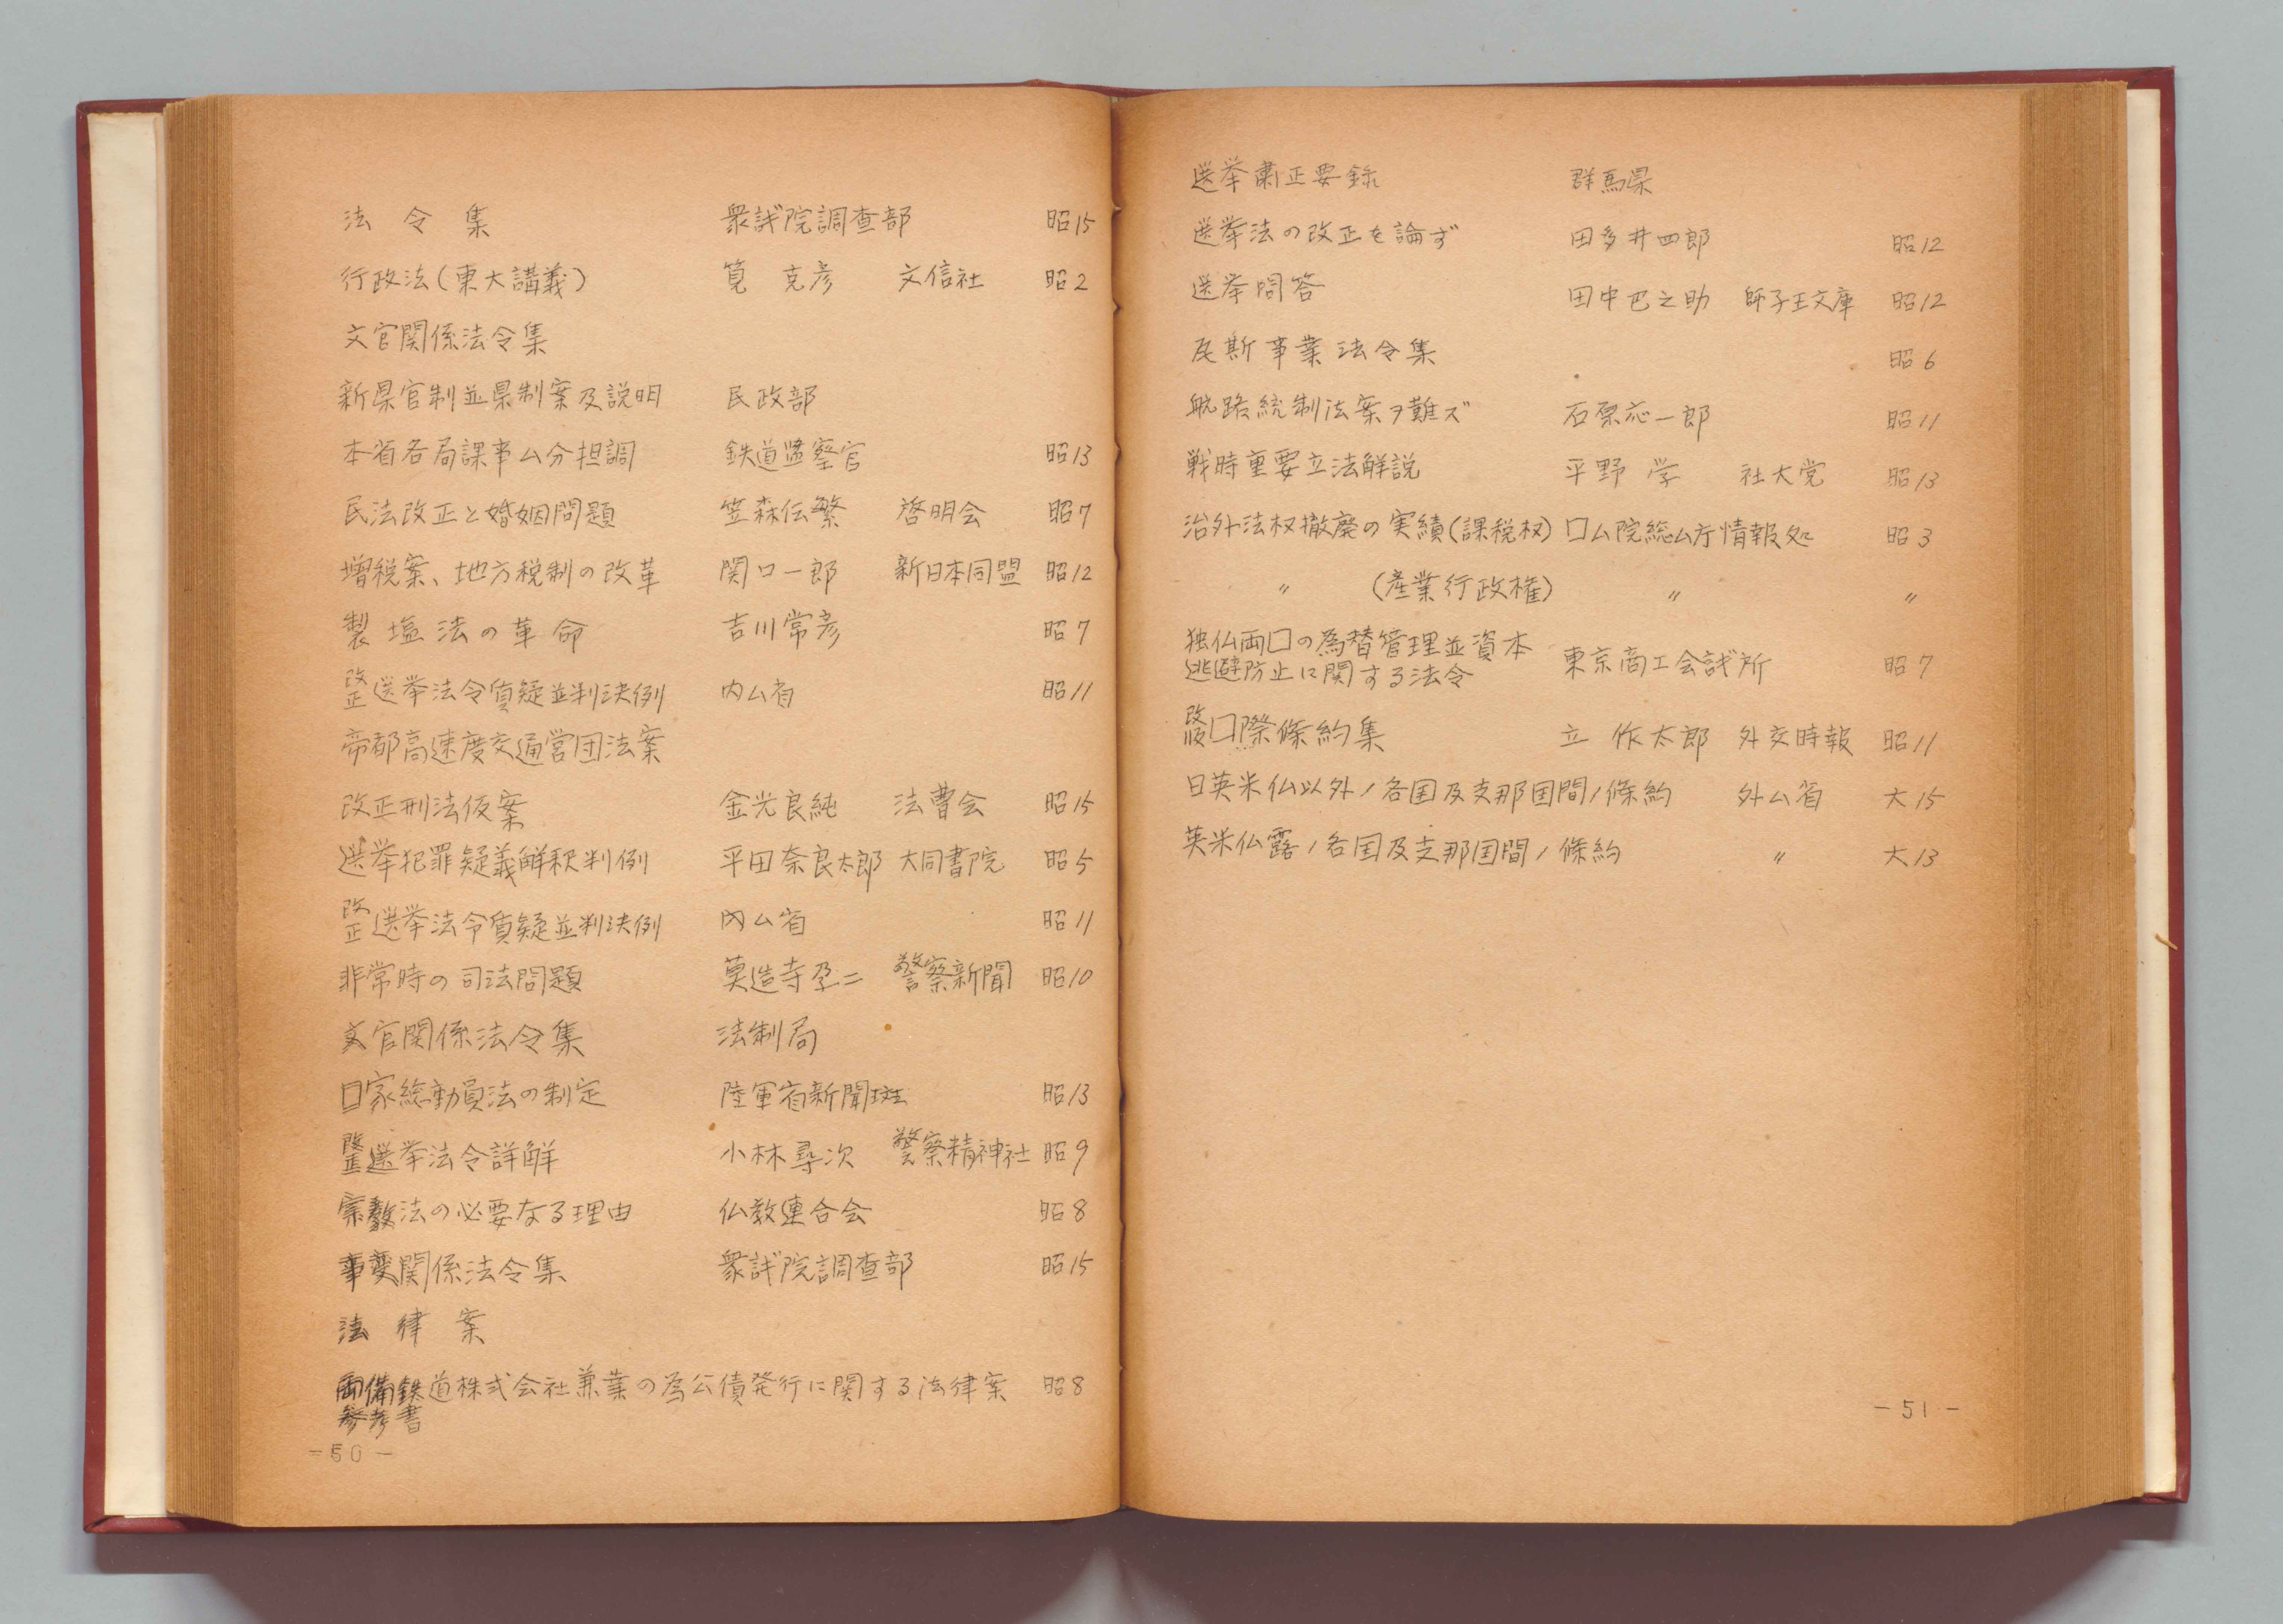 法令集 衆議院調査部 昭15
行政法(東大講義) 筧克彦 文信社 昭2
文官関係法令集
新県官制並県制案及説明 民政部
本省各局課事ム分担調 鉄道監察官 昭13
民法改正と婚姻問題 笠森伝繁 啓明会 昭7
増税案、地方税制の改革 関口一郎 新日本同盟 昭12
製塩法の革命 吉川常彦 昭7
改正選挙法令質疑並判決例 内ム省 昭11
帝都高速度交通営団法案
改正刑法仮案 金光良純 法曹会 昭15
選挙犯罪疑義解釈判例 平田奈良太郎 大同書院 昭5
改正選挙法令質疑並判決例 内ム省 昭11
非常時の司法問題 莫造寺孕二 警察新聞 昭10
文官関係法令集 法制局
囗家総動員法の制定 陸軍省新聞班 昭13
改正選挙法令詳解 小林尋次 警察精神社 昭9
宗教法の必要なる理由 仏教連合会 昭8
事変関係法令集 衆議院調査部 昭15
法律案
両備鉄道株式会社兼業の為公債発行に関する法律案 昭8
参考書
-50-
選挙粛正要録 群馬県
選挙法の改正を論ず 田多井四郎 昭12
選挙問答 田中巴之助 師子王文庫 昭12
瓦斯事業法令集 昭6
航路統制法案ヲ難ズ 石原応一郎 昭11
戦時重要立法解説 平野学 社大党 昭13
治外法权撤廃の実績(課税权) 囗ム院総ム庁情報処 昭3
〃 (産業行政権) 〃 〃
独仏両囗の為替管理並資本
逃避防止に関する法令 東京商工会議所 昭7
改版囗際條約集 立作太郎 外交時報 昭11
日英米仏以外ノ各国及支那国間ノ條約 外ム省 大15
英米仏露ノ各国及支那国間ノ條約 〃 大13
-51-